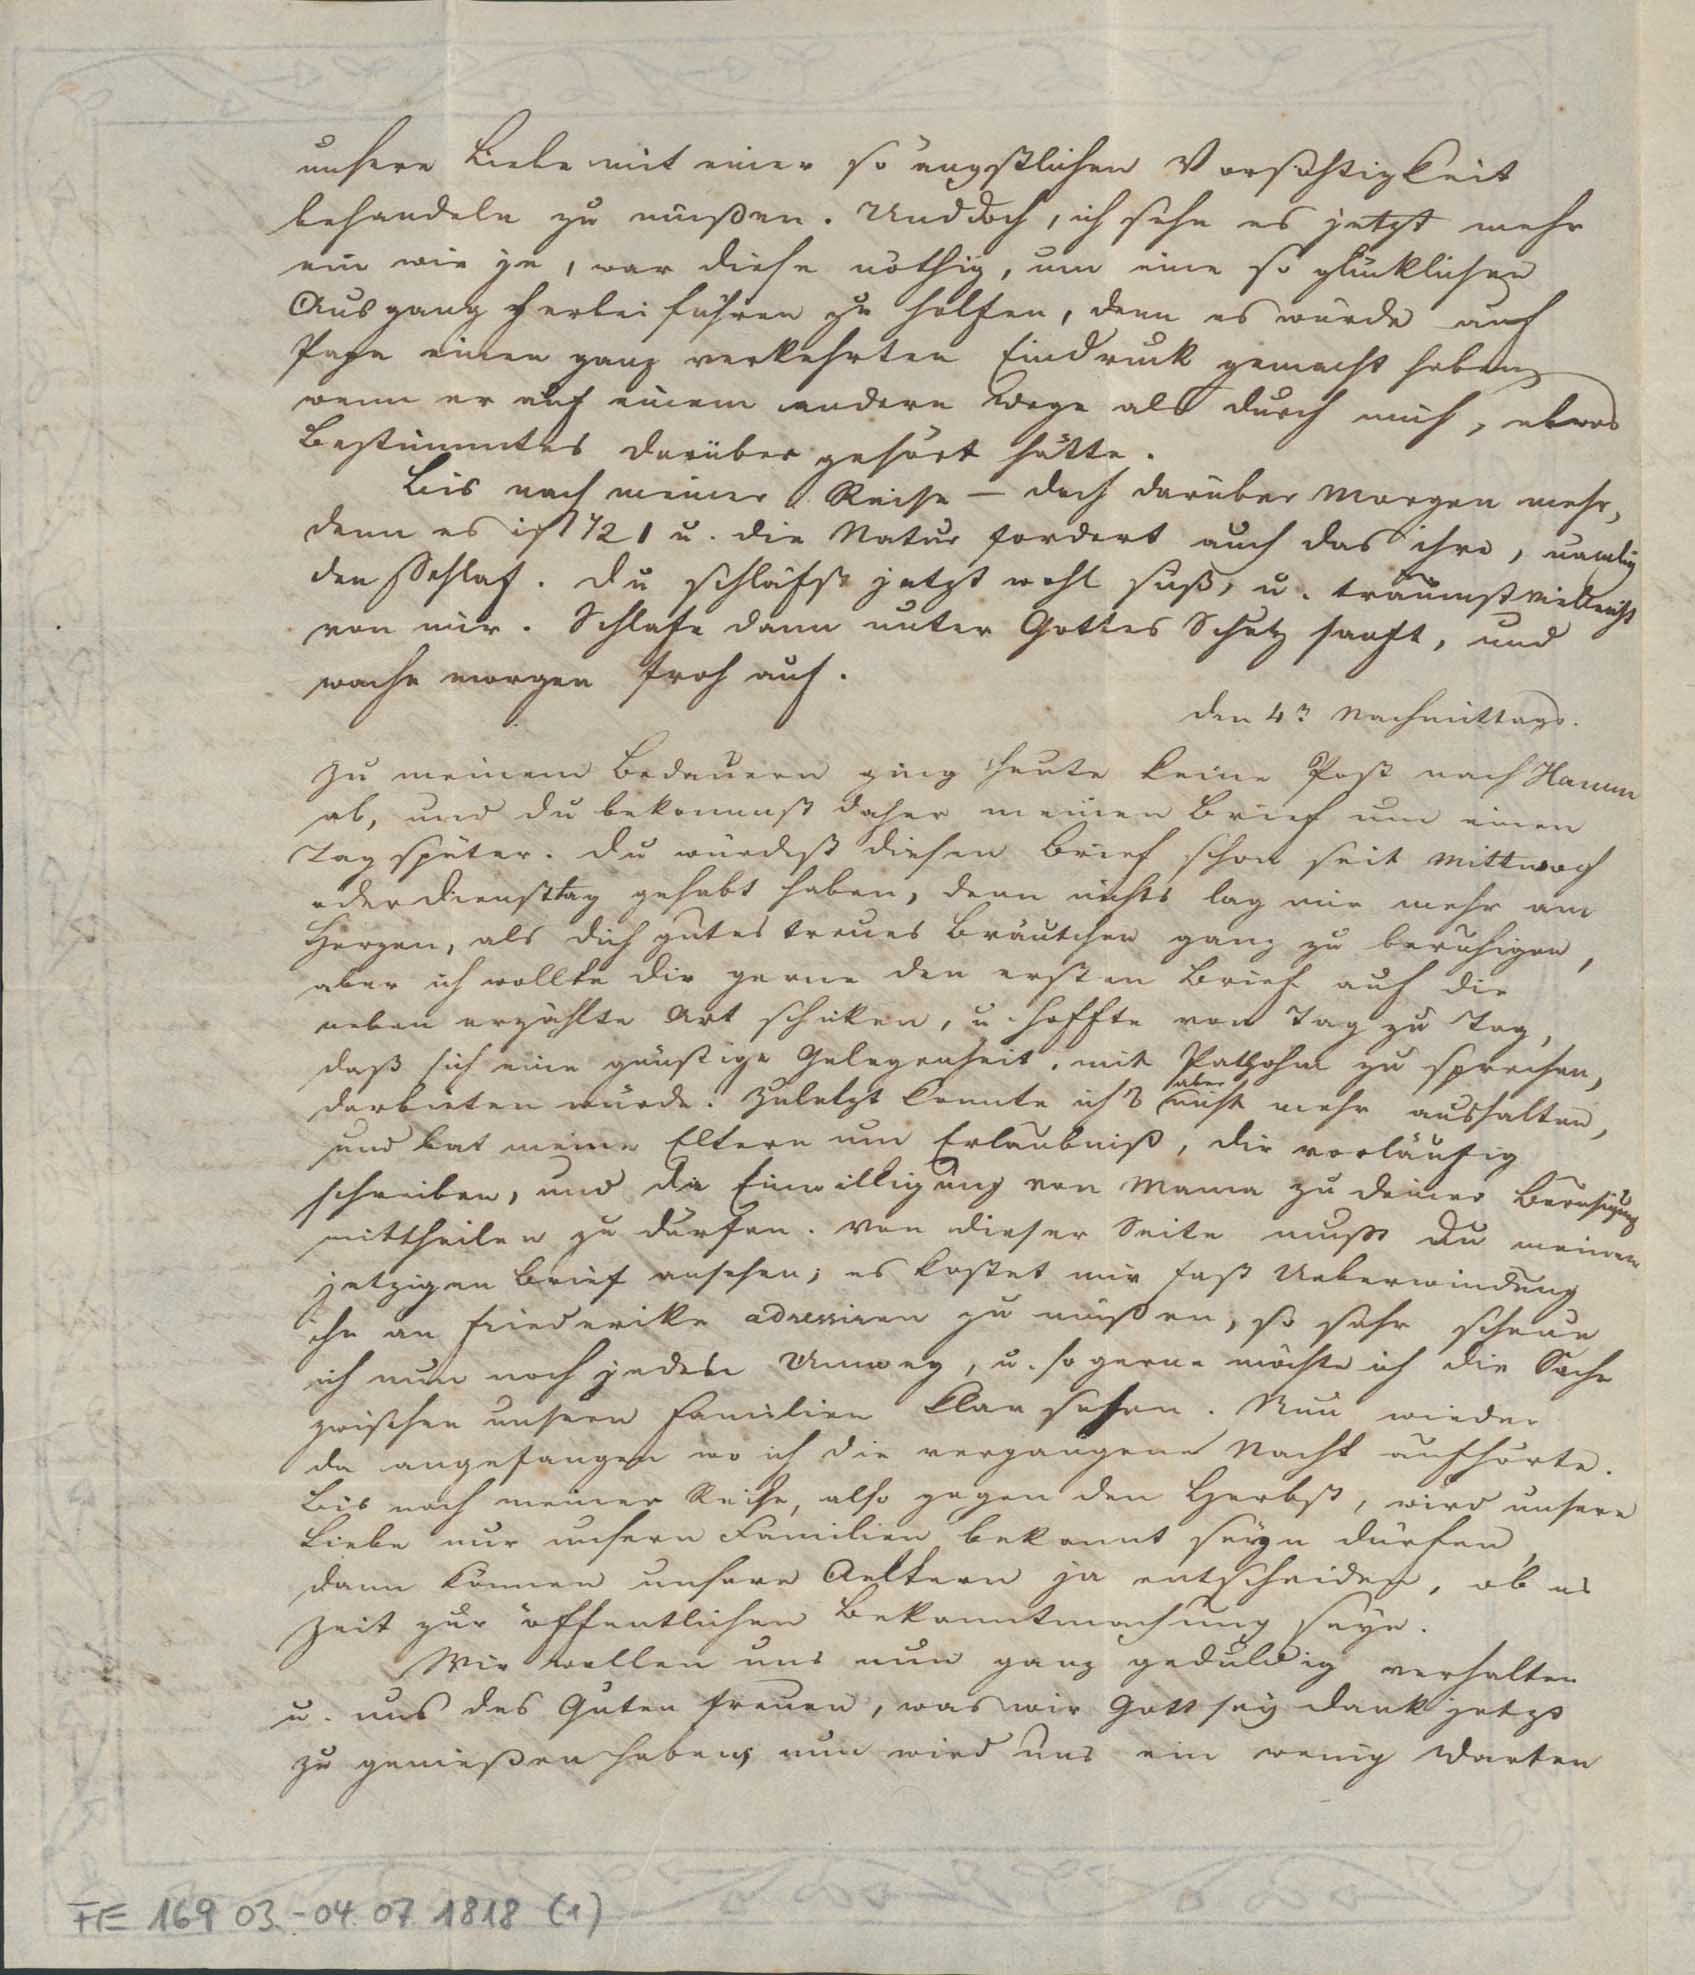 unsere Liebe mit einer so ängstlichen Vorsichtigkeit
behandeln zu müßen. Und doch, ich sehe es jetzt mehr
ein wie je, war diese nöthig, um eine so glücklichen
Ausgang herbei führen zu helfen, denn es würde auf
Papa einen ganz verkehrten Eindruck gemacht haben,
wenn er auf einem andern Wege als durch mich, etwas
Bestimmtes darüber gehört hätte.
Bis nach meiner Reise – doch darüber morgen mehr,
denn es ist 1/2 1 u. die Natur fordert auch das ihre, nämlig
den Schlaf. Du schläfst jetzt wohl süß, u. träumst vielleicht
von mir. Schlafe dann unter Gottes Schutz sanft, und
wache morgen froh auf.
den 4n Nachmittags.
Zu meinem Bedauern ging heute keine Post nach Hamm
ab, und du bekommst daher meinen Brief um einen
Tag später. Du würdest diesen Brief schon seit Mittwoch
oder Diensttag gehabt haben, denn nichts lag mir mehr am
Herzen, als dich gutes treues Bräutchen ganz zu beruhigen,
aber ich wollte dir gerne den ersten Brief auf die
neben erzählte Art schicken, u. hoffte von Tag zu Tag,
daß sich eine günstige Gelegenheit, mit Pathohm zu sprechen,
darbieten würde. Zuletzt konnte ich's aber nicht mehr aushalten,
und bat meine Eltern um Erlaubniß, dir vorläufig
schreiben, und die Einwilligung von Mama zu deiner Beruhigung
mittheilen zu dürfen. Von dieser Seite mußt Du meinen
jetzigen Brief ansehen; es kostet mir fast Ueberwindung
ihn an Friederike adressiren zu müßen, so sehr scheue
ich nun noch jeden Umweg, u. so gerne möchte ich die Sache
zwischen unsern Familien klar sehen. Nun wieder
da angefangen wo ich die vergangene Nacht aufhörte.
Bis nach meiner Reise, also gegen den Herbst, wird unsere
Liebe nur unsern Familien bekannt seyn dürfen,
dann können unsere Aeltern ja entscheiden, ob es
Zeit zur öffentlichen Bekanntmachung seye.
Wir wollen uns nun ganz geduldig verhalten
u. uns des Guten freuen, was wir Gott sey dank jetzt
zu genießen haben, nun wird uns ein wenig Warten
FE 169 03.-04.07 1818 (1)